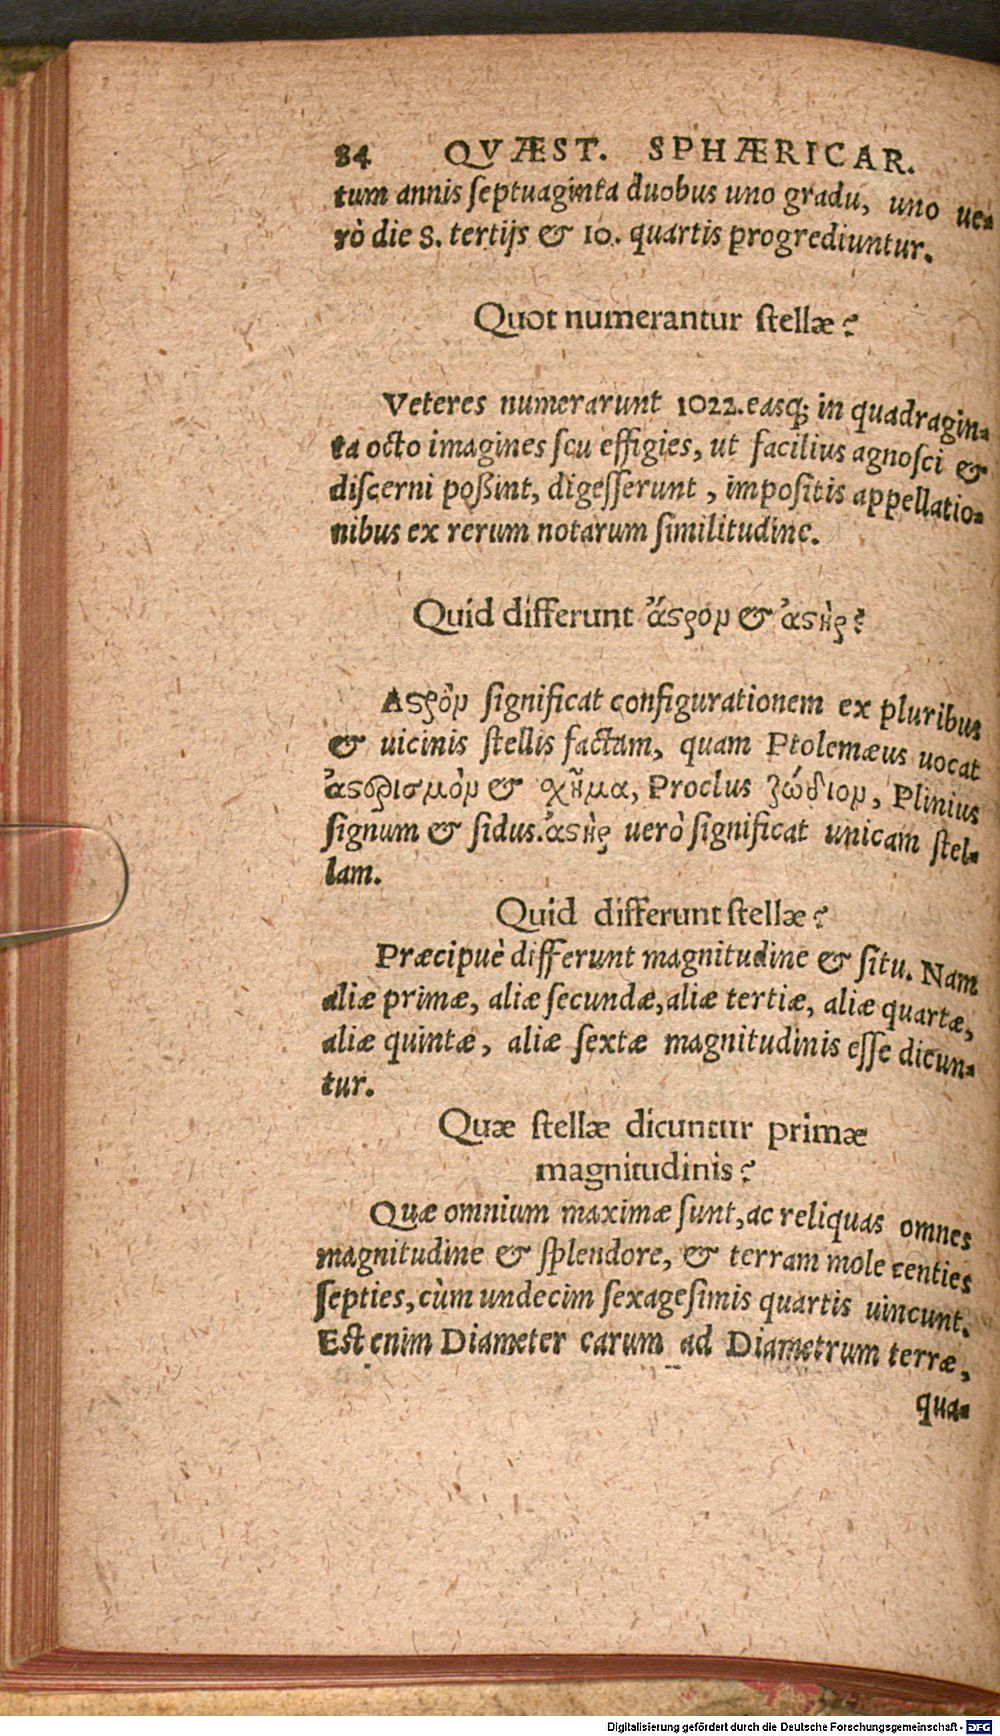 84 QVÆST. SPHÆRICAR.
tum annis ſeptuaginta duobus uno gradu, uno ue-
rò die 8. tertijs & 10. quartis progrediuntur.
Quot numerantur ſtellæ?
Veteres numerarunt 1022. easq; in quadragin-
ta octo imagines ſeu effigies, ut facilius agnoſci &
diſcerni poßint, digeſſerunt, impoſitis appellatio-
nibus ex rerum notarum ſimilitudine.
Quid differunt ἄϛρον & ἀϛὴρ?
Αϛρὸν ſignificat configurationem ex pluribus
& uicinis ſtellis factam, quam Ptolemæus uocat
ἀϛρισμὸν & χῆμα, Proclus ζώδιον, Plinius
ſignum & ſidus. ἀϛὴρ uerò ſignificat unicam ſtel-
lam.
Quid differunt ſtellæ?
Præcipuè differunt magnitudine & ſitu. Nam
aliæ primæ, aliæ ſecundæ, aliæ tertiæ, aliæ quartæ,
aliæ quintæ, aliæ ſextæ magnitudinis eſſe dicun-
tur.
Quæ ſtellæ dicuntur primæ
magnitudinis?
Quæ omnium maximæ ſunt, ac reliquas omnes
magnitudine & ſplendore, & terram mole centies
ſepties, cùm undecim ſexageſimis quartis uincunt.
Eſt enim Diameter earum ad Diametrum terræ,
qua-
Digitalisierung gefördert durch die Deutsche Forschungsgemeinschaft - DFG